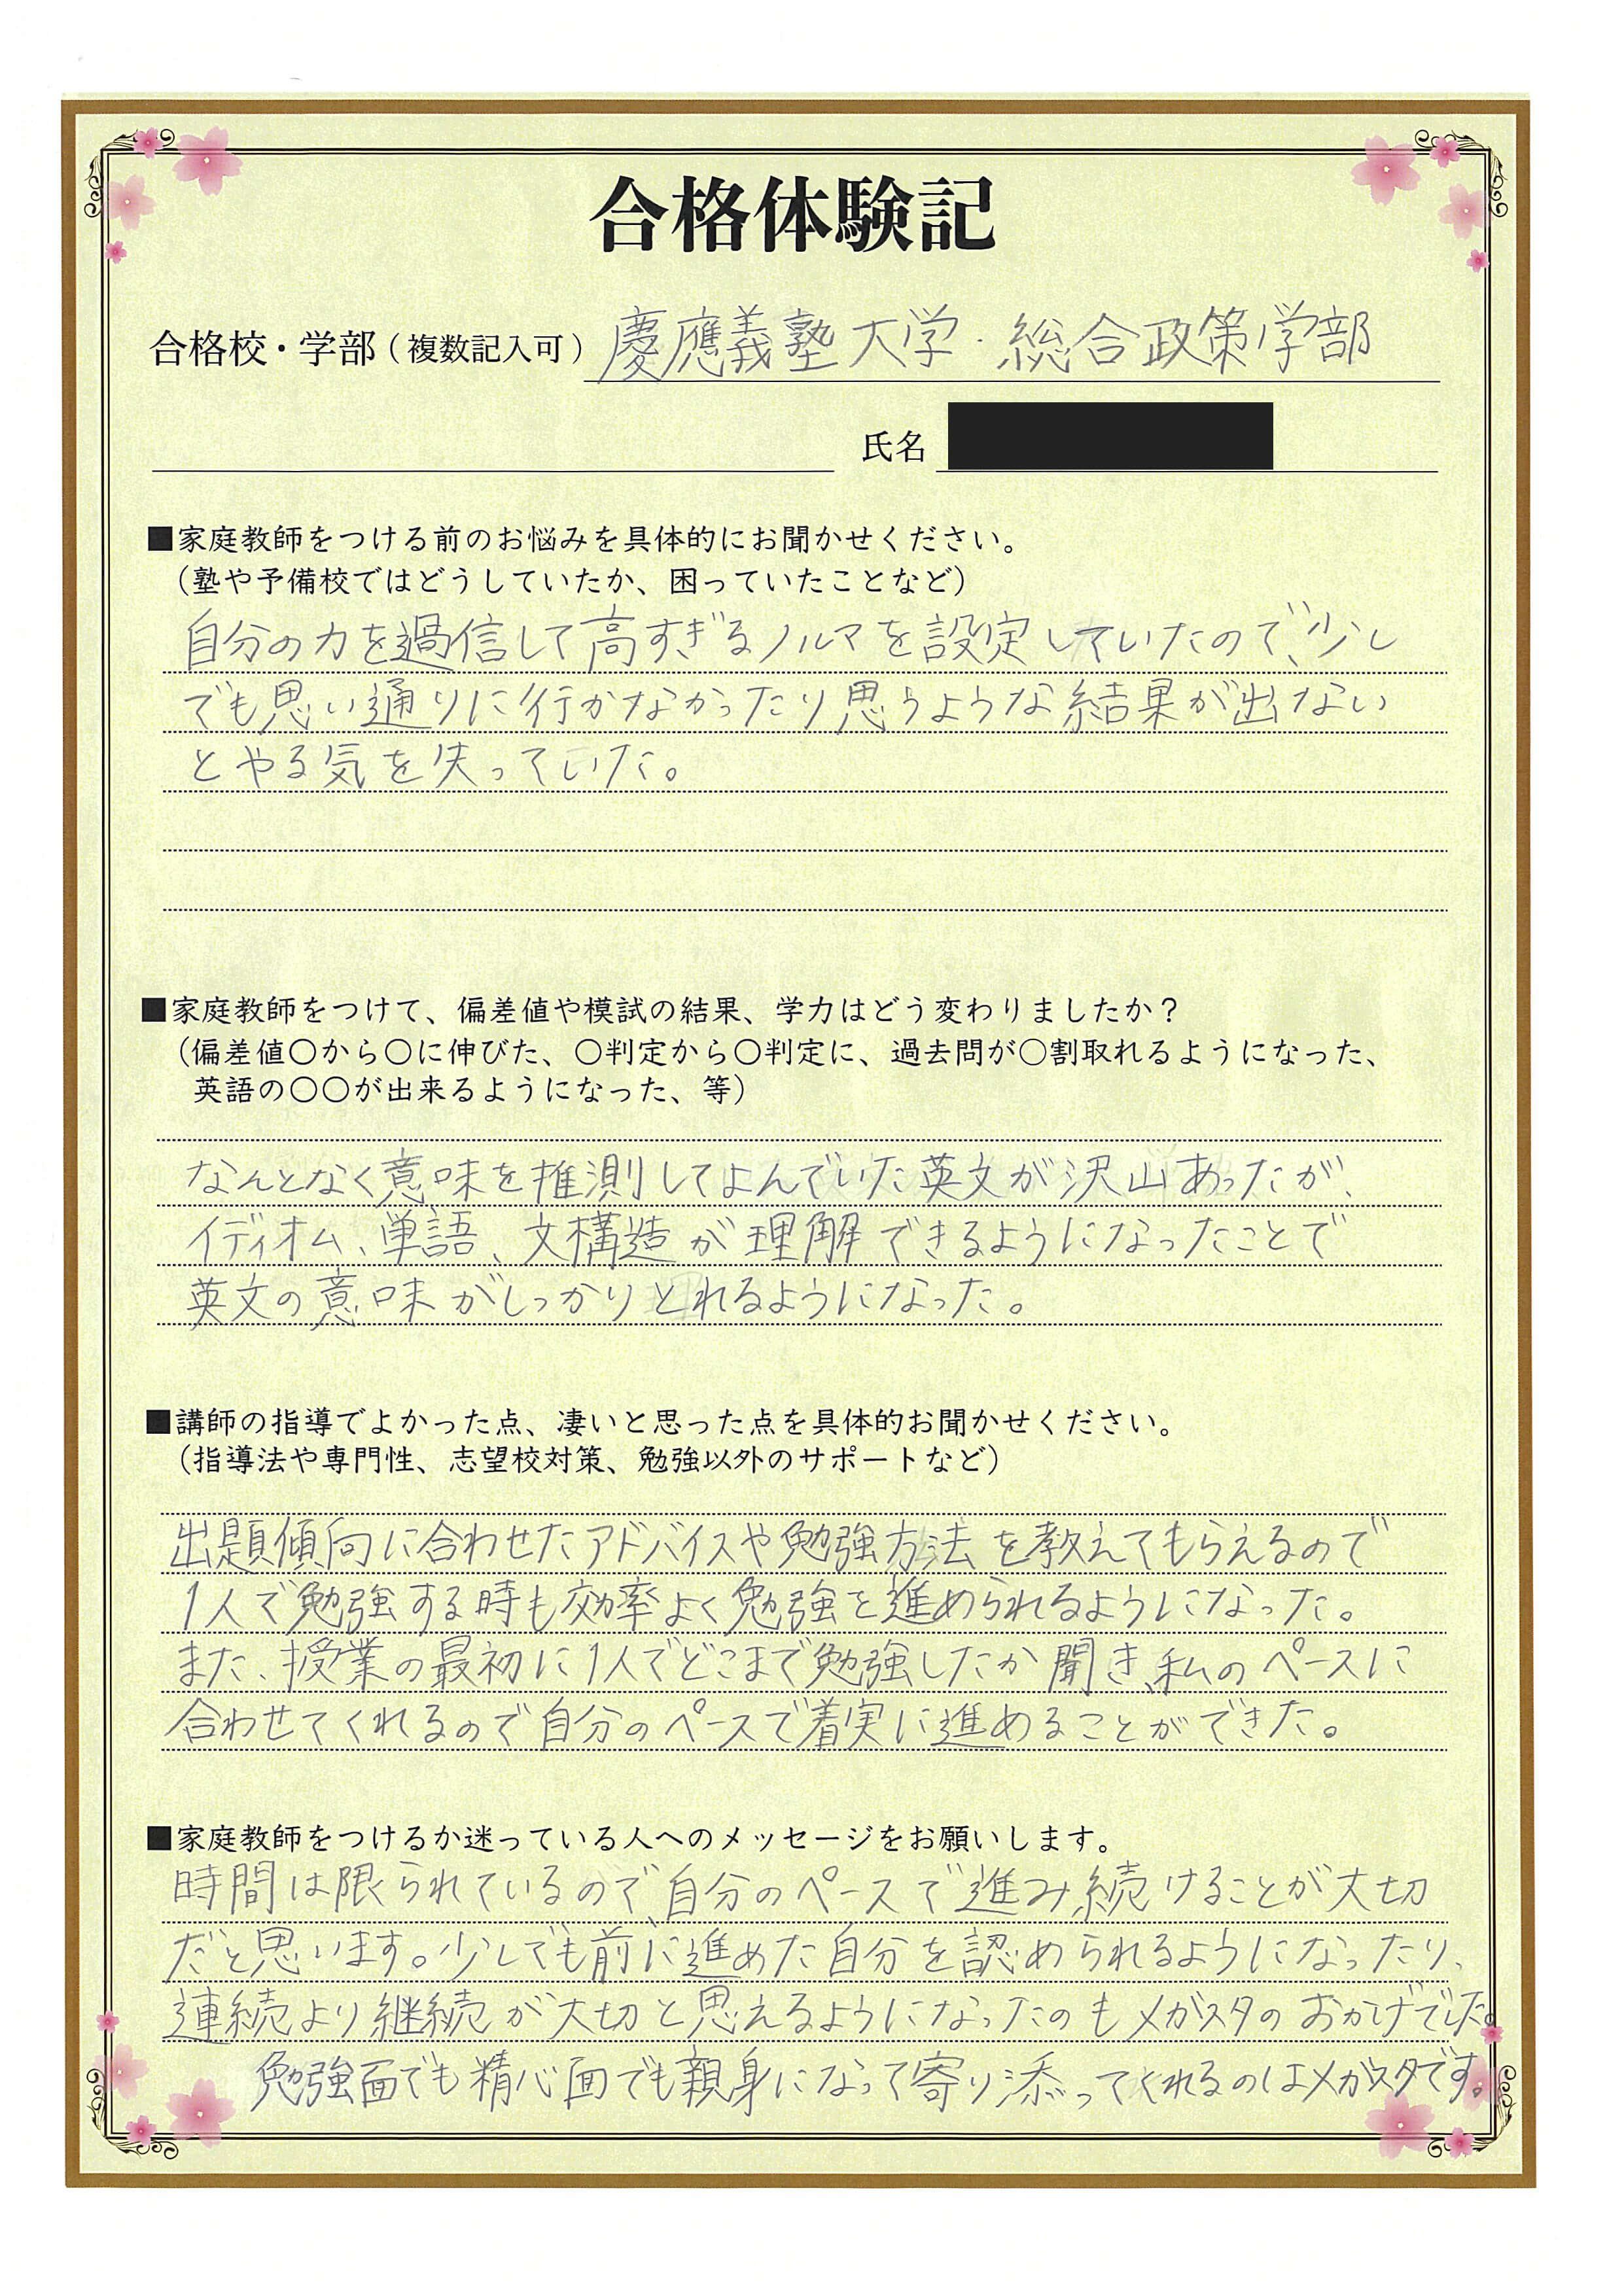 合格体験記
合格校・学部（複数記入可）慶應義塾大学・総合政策学部
氏名
■家庭教師をつける前のお悩みを具体的にお聞かせください。
（塾や予備校ではどうしていたか、困っていたことなど）
自分の力を過信して高すぎるノルマを設定していたので、少し
でも思い通りに行かなかったり思うような結果が出ない
とやる気を失っていた。
■家庭教師をつけて、偏差値や模試の結果、学力はどう変わりましたか？
（偏差値〇から〇に伸びた、〇判定から〇判定に、過去問が〇割取れるようになった、
英語の〇〇が出来るようになった、等）
なんとなく意味を推測してよんでいた英文が沢山あったが、
イディオム、単語、文構造が理解できるようになったことで
英文の意味がしっかりとれるようになった。
■講師の指導でよかった点、凄いと思った点を具体的お聞かせください。
（指導法や専門性、志望校対策、勉強以外のサポートなど）
出題傾向に合わせたアドバイスや勉強方法を教えてもらえるので
1人で勉強する時も効率よく勉強を進められるようになった。
また、授業の最初に1人でどこまで勉強したか聞き、私のペースに
合わせてくれるので自分のペースで着実に進めることができた。
■家庭教師をつけるか迷っている人へのメッセージをお願いします。
時間は限られているので、自分のペースで進み続けることが大切
だと思います。少しでも前に進めた自分を認められるようになったり、
連続より継続が大切と思えるようになったのもメガスタのおかげでした。
勉強面でも精心面でも親身になって寄り添ってくれるのはメガスタです。